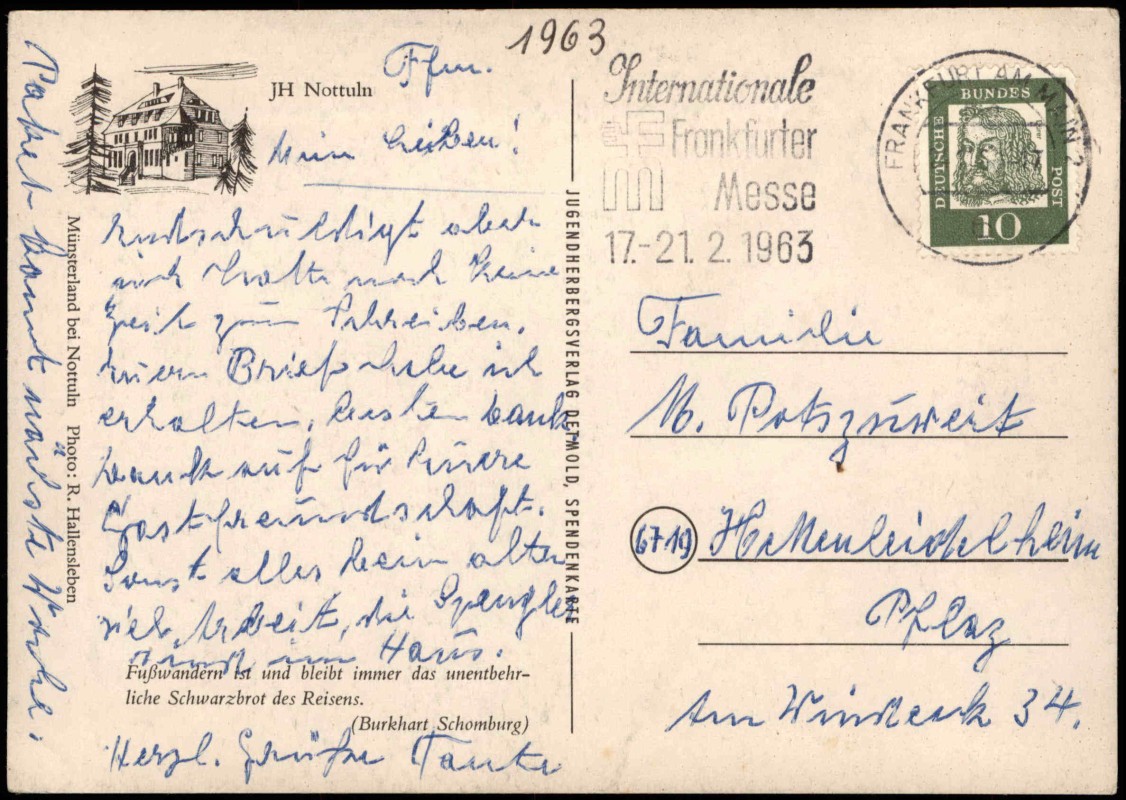 1963
Ffm.
JH Nottuln
Meine Lieben!
Entschuldigt aber
ich hatte noch keine
Zeit zum Schreiben.
Euern Brief habe ich
erhalten, besten Dank
Dank auf für Eure
Gastfreundschaft.
Sonst alles beim alten
viel Arbeit, die Spengler
sind im Haus.
Fußwandern ist und bleibt immer das unentbehr-
liche Schwarzbrot des Reisens.
(Burkhart Schomburg)
Herzl. Grüße Tante
Paket kommt nächste Woche.
Münsterland bei Nottuln Photo: R. Hallensleben
JUGENDHERBERGSVERLAG DETMOLD, SPENDENKARTE
Internationale
Frankfurter
Messe
17.-21. 2. 1963
FRANKFURT AM MAIN 2
DEUTSCHE BUNDES POST
10
Familie
M. Potszuweit
6719 Hettenleidelheim
Pflaz
Am Windeck 34.